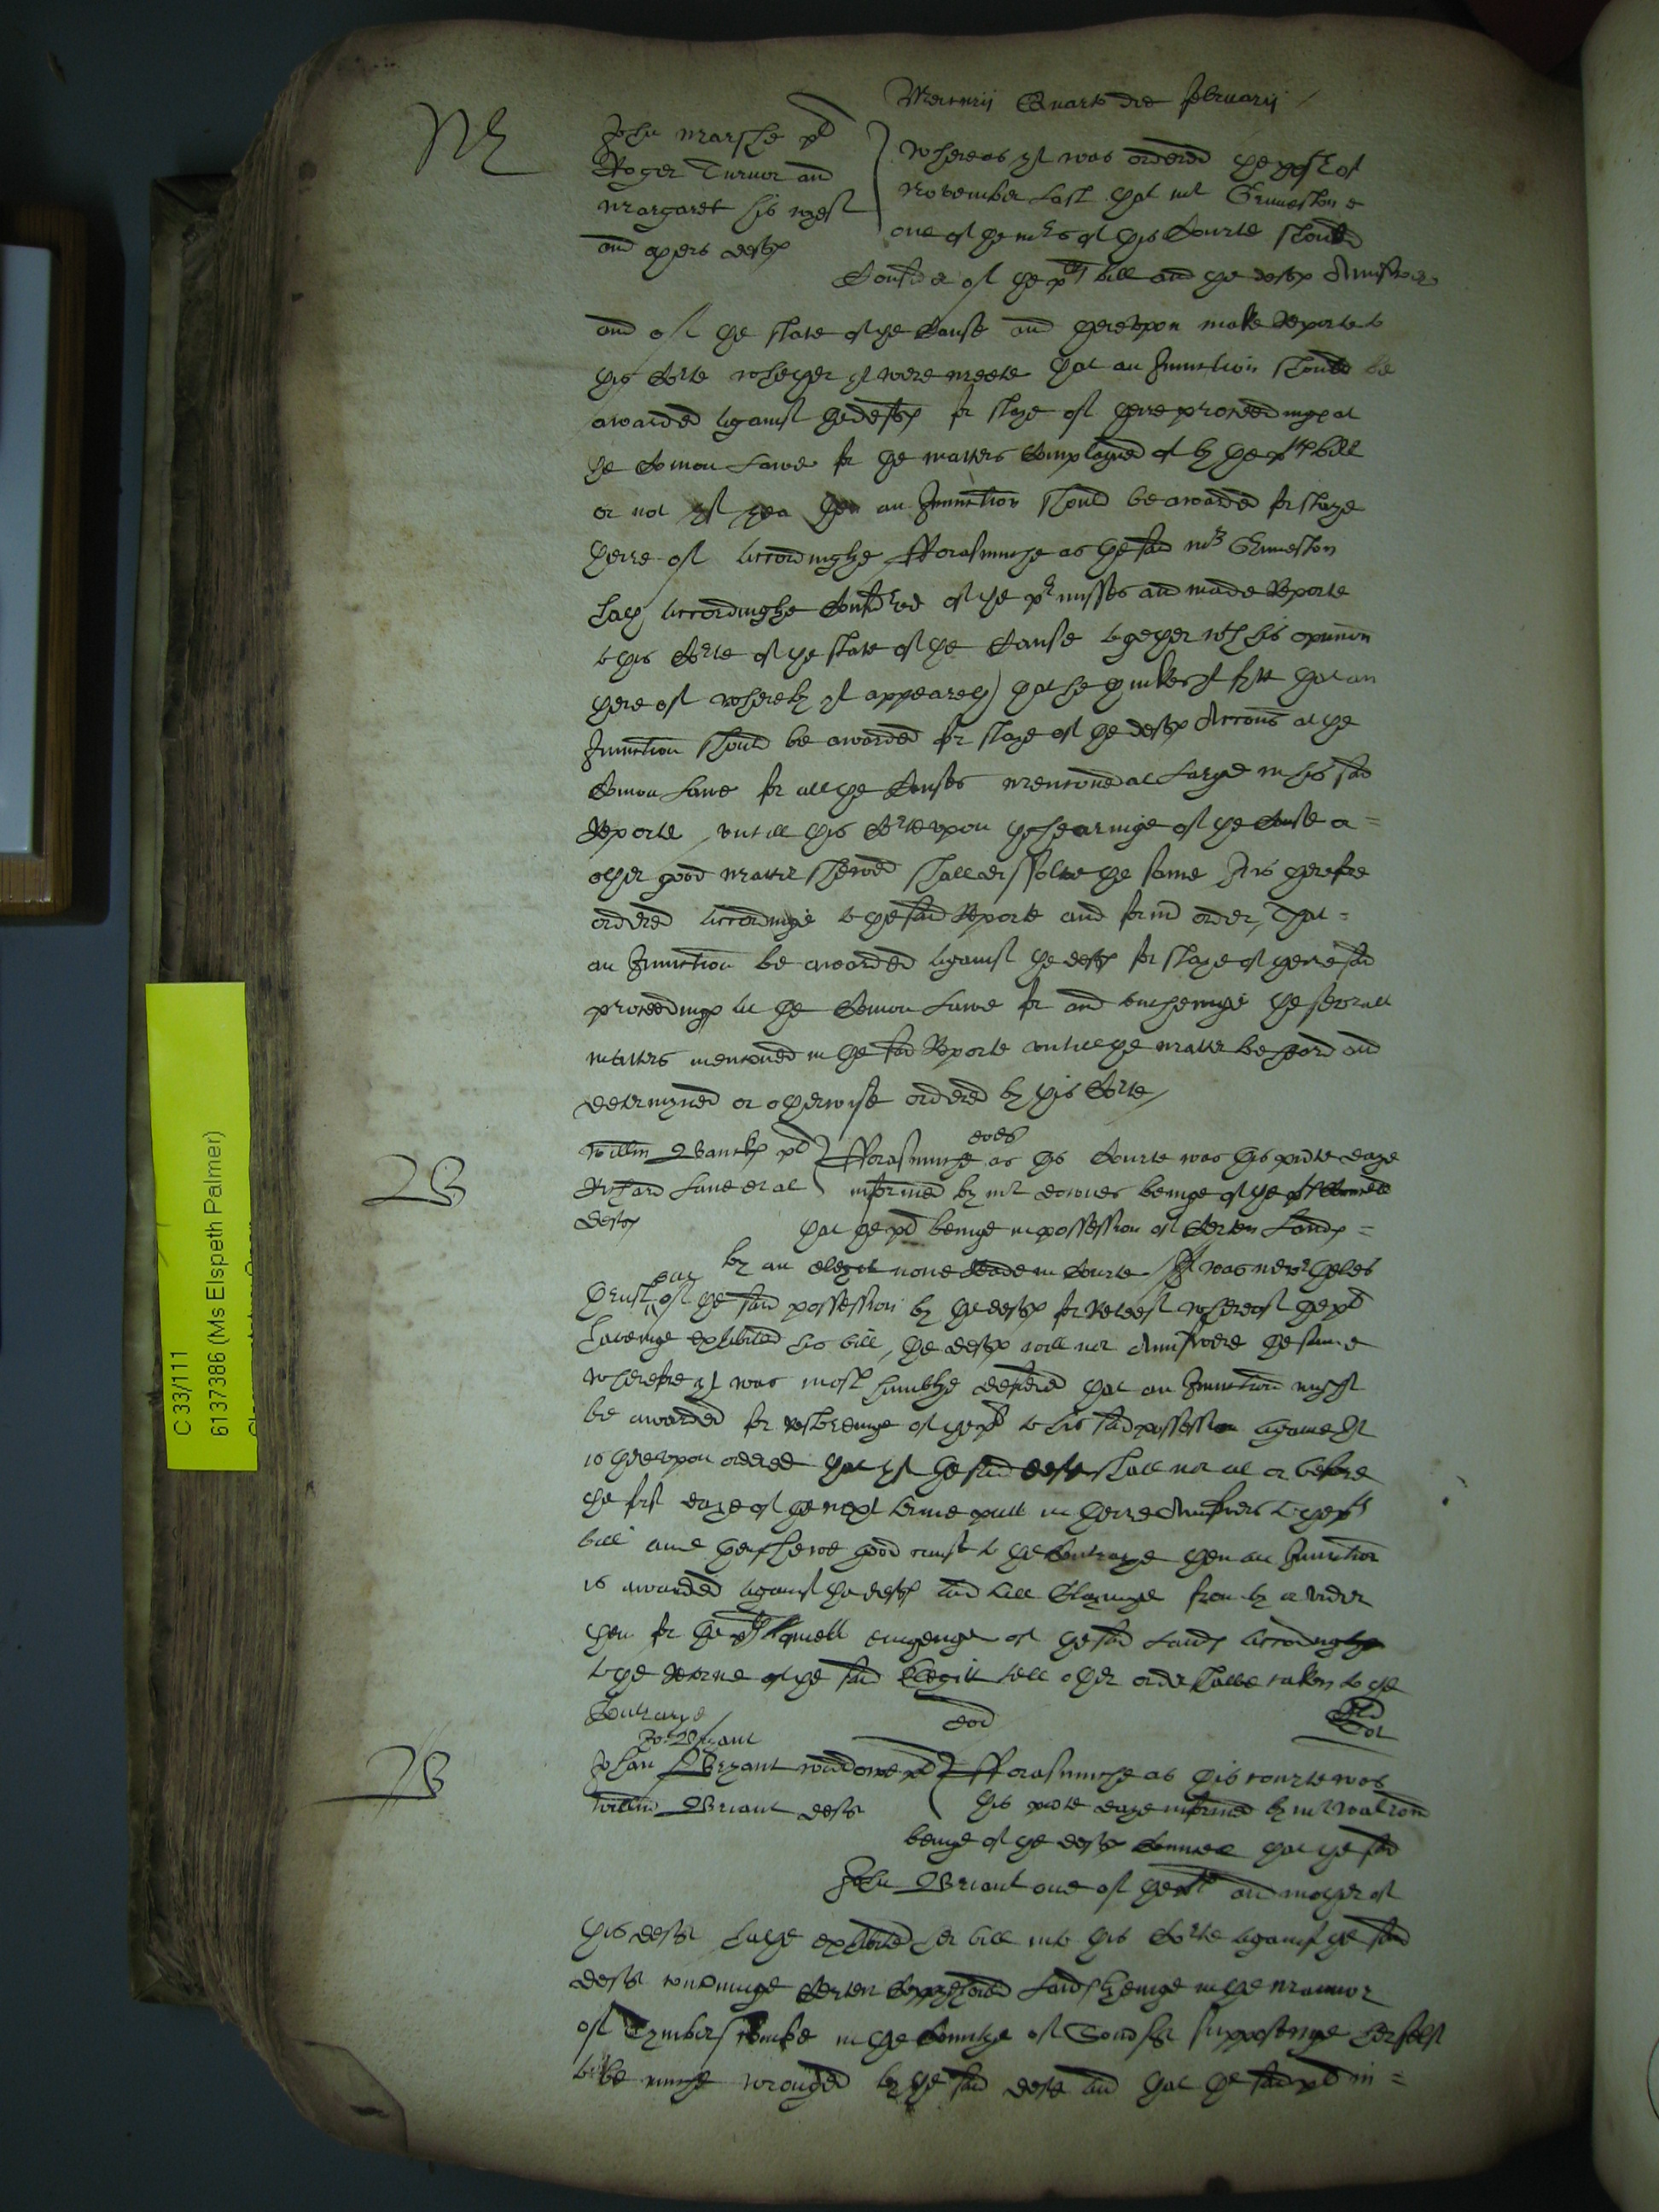 Mercurij Quarto die Februarij
M
John Marshe pl
Roger Turnor and
Margaret his wyef
and others deftes
Whereas yt was ordered the xxjth of
November Last that mr Grimeston
one of the mrs of this Courte should
Consider of the ples bill and the deftes Aunswer
and of the state of the Cause and therevpon make Reporte to
this Corte whether yt were meete that an Iniunction should be
awarded against the deftes for staye of theire proceedinges at
the Comon Lawe for the matters Complayned of by the ples bill
or not yf yea then an Iniunction should be awarded for staye
thereof Accordinglye Fforasmuche as the said mr Grimeston
hath Accordinglye Considred of the premisses and made Reporte
to this Corte of the state of the Cause together wth his opinion
thereof whereby yt appeareth that he thinketh fytt that an
Iniunction should be awarded for staye of the deftes Accons at the
Comon Lawe for all the Causes mencioned at Large in his said
Reporte vntill this Corte vpon the hearinge of the Cause o =
other good matter shewed shall dissolve the same It is therefore
ordered Accordinge to the said Reporte and former order, That =
an Iniunction be awarded against the deftes for staye of theire said
proceedinges at the Comon Lawe for and touchinge the severall
matters mencioned in the said Reporte vntill the matter be heard and
determyned or otherwise ordered by this Corte
B
Willm Banckes pl
Richard Lane et al
deftes
Fforasmuche as this Courte was this pnte daye
informed by mr downes beinge of the ples Councell
that the pl beinge in possession of Certen Landes =
by an elegit none made in Courte It was never theles
thrust out of the said possession by the deftes for Releef whereof the pl
haveinge exhibited his bill, the deftes will not Aunswere the same
wherefore yt was most humblye desired that an Iniunction might
be awarded for restoreinge of the pl to his said possession againe It
is therevpon ordered that yf the said deftes shall not at or before
the first daye of the next terme putt in theire Aunswers to the ples
bill and then shewe good cause to the Contrarye then an Iniunction
is awarded against the deftes and all Clayminge from by or vnder
them for the ples quiett enioyenge of the said Landes Accordinglye
to the Retorne of the said Elegitt till other order shalbe taken to the
Contrarye
B
Johan Bryant widowe pl
Willm Briant deft
Fforasmuche as this courte was
this pnte daye informed by mr Walrond
beinge of the deftes Councell that the said
John Briant one of the ples and mother of
this deft hathe exhibited her bill into this Corte against the said
deft touchinge Certen Coppyhold Landes lyenge in the mannor
of Tymberscombe in the Countye of Somrset supposinge herself
to be muche wronged by the said deft and that the said pl in =
C 33/111
6137386 (Ms Elspeth Palmer)